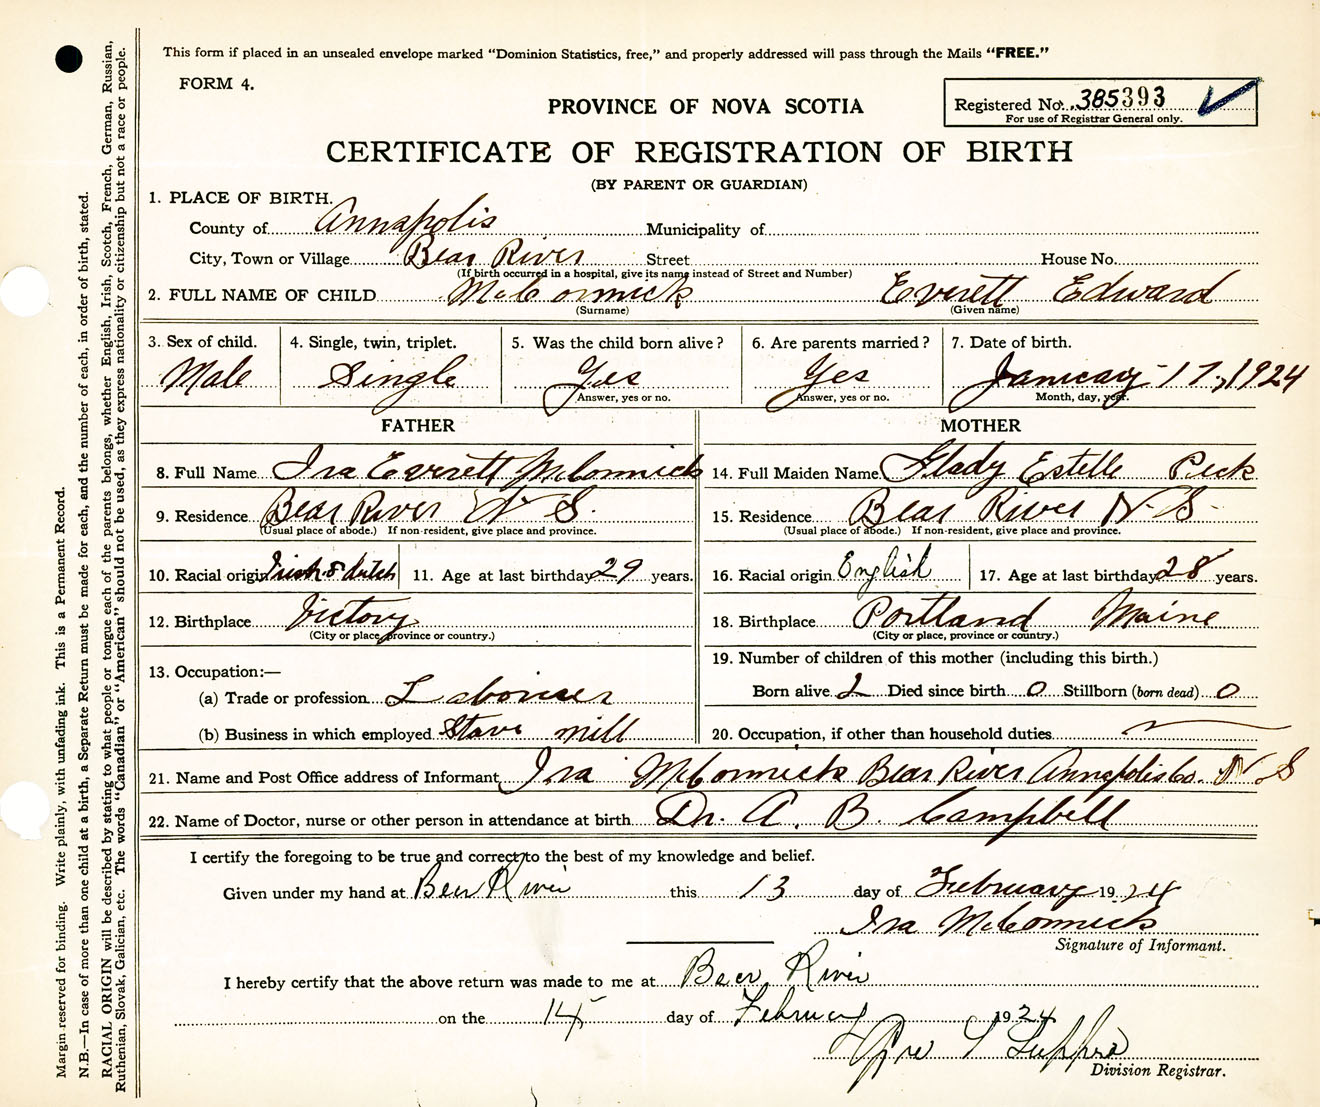 This form if placed in an unsealed envelope marked "Dominion Statistics, free," and properly addressed will pass through the Mails "FREE."
FORM 4.
PROVINCE OF NOVA SCOTIA
Registered No. 385393
For use of Registrar General only.
CERTIFICATE OF REGISTRATION OF BIRTH
(BY PARENT OR GUARDIAN)
1. PLACE OF BIRTH.
County of Annapolis Municipality of
City, Town or Village Bear River Street House No.
(If birth occurred in a hospital, give its name instead of Street and Number)
2. FULL NAME OF CHILD McCormick Everett Edward
(Surname) (Given name)
3. Sex of child. 4. Single, twin, triplet. 5. Was the child born alive? 6. Are parents married? 7. Date of birth.
Male Single Yes Yes January 17, 1924
Answer, yes or no. Answer, yes or no. Month, day, year.
FATHER MOTHER
8. Full Name Ira Everett McCormick 14. Full Maiden Name Glady Estelle Peck
9. Residence Bear River N S. 15. Residence Bear River N. S.
(Usual place of abode.) If non-resident, give place and province. (Usual place of abode.) If non-resident, give place and province.
10. Racial origin Irish & dutch 11. Age at last birthday 29 years. 16. Racial origin English 17. Age at last birthday 28 years.
12. Birthplace Victory 18. Birthplace Portland Maine
(City or place, province or country.) (City or place, province or country.)
13. Occupation:— 19. Number of children of this mother (including this birth.)
(a) Trade or profession Labourer Born alive 2 Died since birth 0 Stillborn (born dead) 0
(b) Business in which employed Stave mill 20. Occupation, if other than household duties
21. Name and Post Office address of Informant Ira McCormick Bear River Annapolis Co. N. S
22. Name of Doctor, nurse or other person in attendance at birth Dr. A. B. Campbell
I certify the foregoing to be true and correct to the best of my knowledge and belief.
Given under my hand at Bear River this 13 day of February 1924
Ira McCormick
Signature of Informant.
I hereby certify that the above return was made to me at Bear River
on the 14 day of February 1924
Division Registrar.
Margin reserved for binding. Write plainly, with unfading ink. This is a Permanent Record.
N.B.—In case of more than one child at a birth, a Separate Return must be made for each, and the number of each, in order of birth, stated.
RACIAL ORIGIN will be described by stating to what people or tongue each of the parents belongs, whether English, Irish, Scotch, French, German, Russian,
Ruthenian, Slovak, Galician, etc. The words "Canadian" or "American" should not be used, as they express nationality or citizenship but not a race or people.